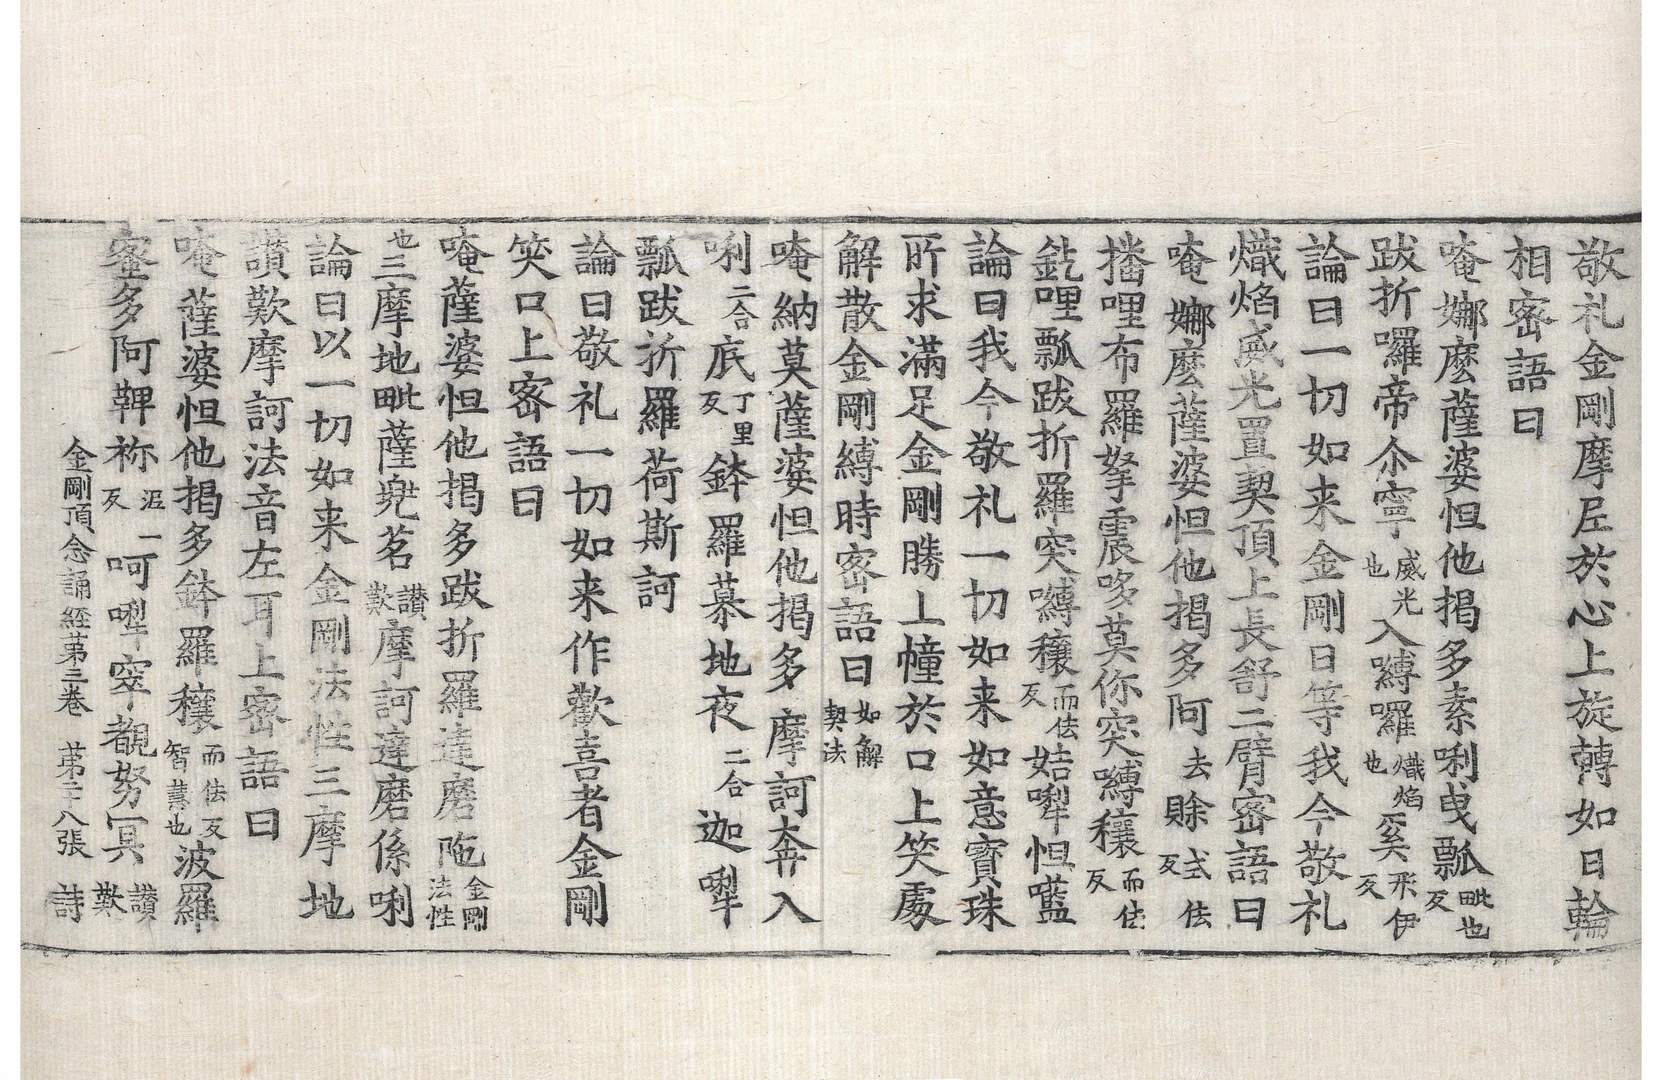 敬礼金剛摩尼於心上旋轉如日輪
相密語曰
唵娜麽薩婆怛他揭多素唎曳瓢毗也反
跋折囉帝尒寧威光也入嚩囉熾焰也奚形伊反
論曰一切如来金剛日等我今敬礼
熾焰威光置契頂上長舒二臂密語曰
唵娜麽薩婆怛他揭多阿去賖式佉反
播哩布羅拏震哆莫你突嚩穰而佉反
釳哩瓢跋折羅突嚩穰而佉反姞犁怛囕
論曰我今敬礼一切如来如意寶珠
所求滿足金剛勝上幢於口上笑處
解散金剛縛時密語曰如解契法
唵納莫薩婆怛他揭多摩訶奔入
唎二合底丁里反鉢羅慕地夜二合迦犁
瓢跋折羅荷斯訶
論曰敬礼一切如来作歡喜者金剛
笑口上密語曰
唵薩婆怛他揭多跋折羅達磨陁金剛法性
也三摩地毗薩茗讃歎摩訶達磨係唎
論曰以一切如来金剛法性三摩地
讃歎摩訶法音左耳上密語曰
唵薩婆怛他揭多鉢羅穰而佉反智慧也波羅
蜜多阿鞞祢一泥反呵犁窣覩努冥讃歎
金剛頂念誦經苐三卷　苐二十八張　詩